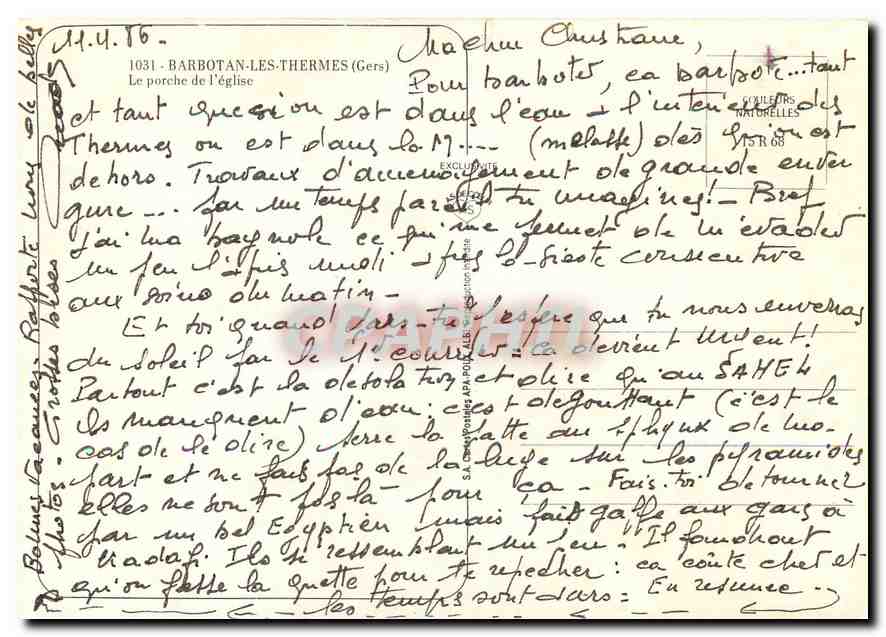 11.4.86.
Ma chère Christiane,
1031 - BARBOTAN-LES-THERMES (Gers)
Le porche de l'église
COULEURS
NATURELLES
15 R 68
EXCLUSIVITÉ
Pour barboter, ça barbote... tant
et tant que si on est dans l'eau à l'intérieur des
Thermes on est dans la M.... (mélasse) dès qu'on est
dehors. Travaux d'aménagement de grande enver
gure... par un temps pareil tu imagines! - Bref
J'ai ma bagnole ce qui me permet de m'évader
un peu l'après midi après la sieste consécutive
aux soins du matin -
Et toi quand pars-tu? J'espère que tu nous enverras
du soleil par le 1er courrier = ça devient urgent!
Partout c'est la désolation et dire qu'au SAHEL
ils manquent d'eau : c'est dégouttant (c'est le
cas de le dire) Serre la patte au Sphynx de ma
part et ne fais pas de la luge sur les pyramides
elles ne sont pas là pour ça - Fais-toi détourner
par un bel Egyptien mais fais gaffe aux gars à
Kadafi. Ils si ressemblent un peu. Il faudrait
qu'on fasse la quette pour te repêcher : ça coûte cher et
les temps sont durs = En résumé...
Bonnes Vacances - Rapporte nous de belles
photos - Grosses bises
S.A. Cartes Postales APA-POUX, ALBI Reproduction interdite
CPAPHIL